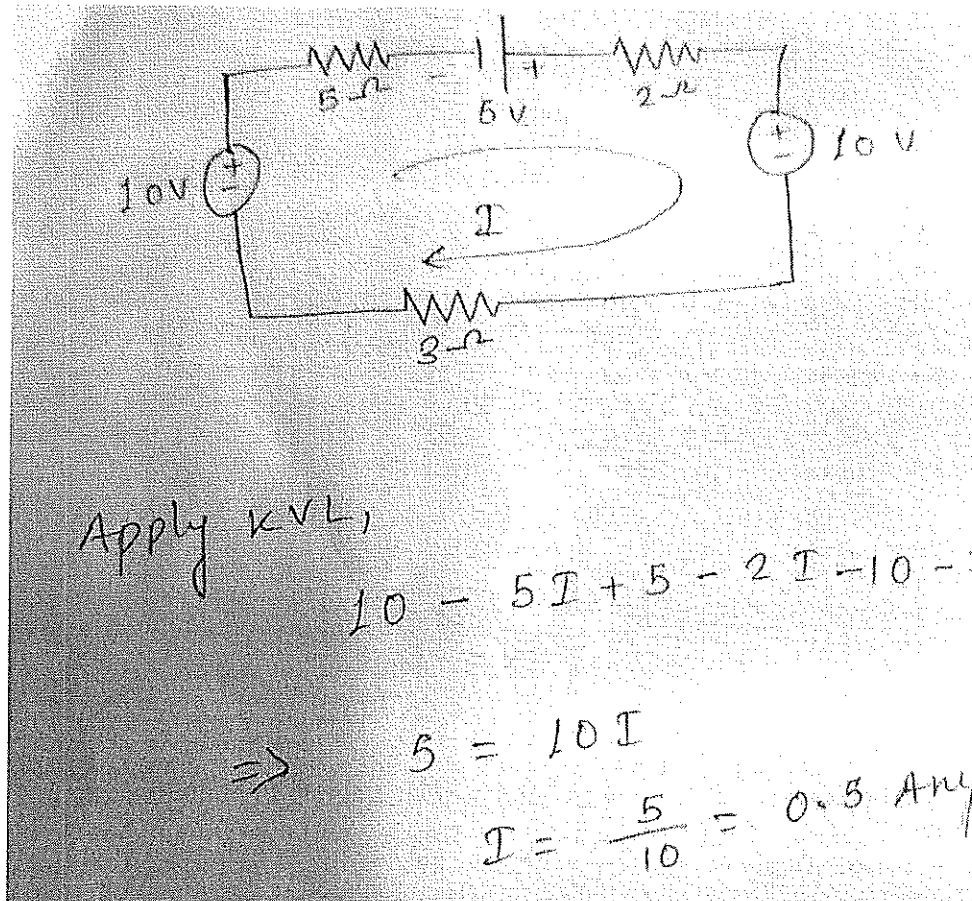 5Ω - + 5V 2Ω
10V + - + - 10V
I
3Ω
Apply KVL,
10 - 5I + 5 - 2I - 10 -
⇒ 5 = 10I
I = 5/10 = 0.5